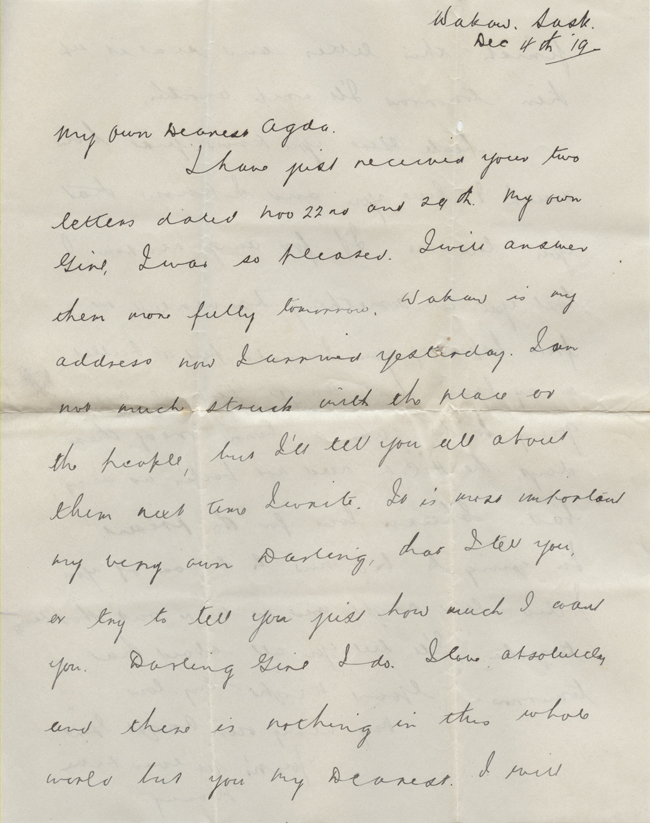 Wakaw. Sask.
Dec 4th '19
My own Dearest Agda.
I have just received your two
letters dated Nov 22nd and 29th. My own
Girl, I was so pleased. I will answer
them more fully tomorrow. Wakaw is my
address now I arrived yesterday. I am
not much struck with the place or
the people, but I'll tell you all about
them next time I write. It is most important
my very own Darling, that I tell you,
or try to tell you just how much I want
you. Darling Girl I do. I love absolutely
and there is nothing in this whole
world but you my Dearest. I will